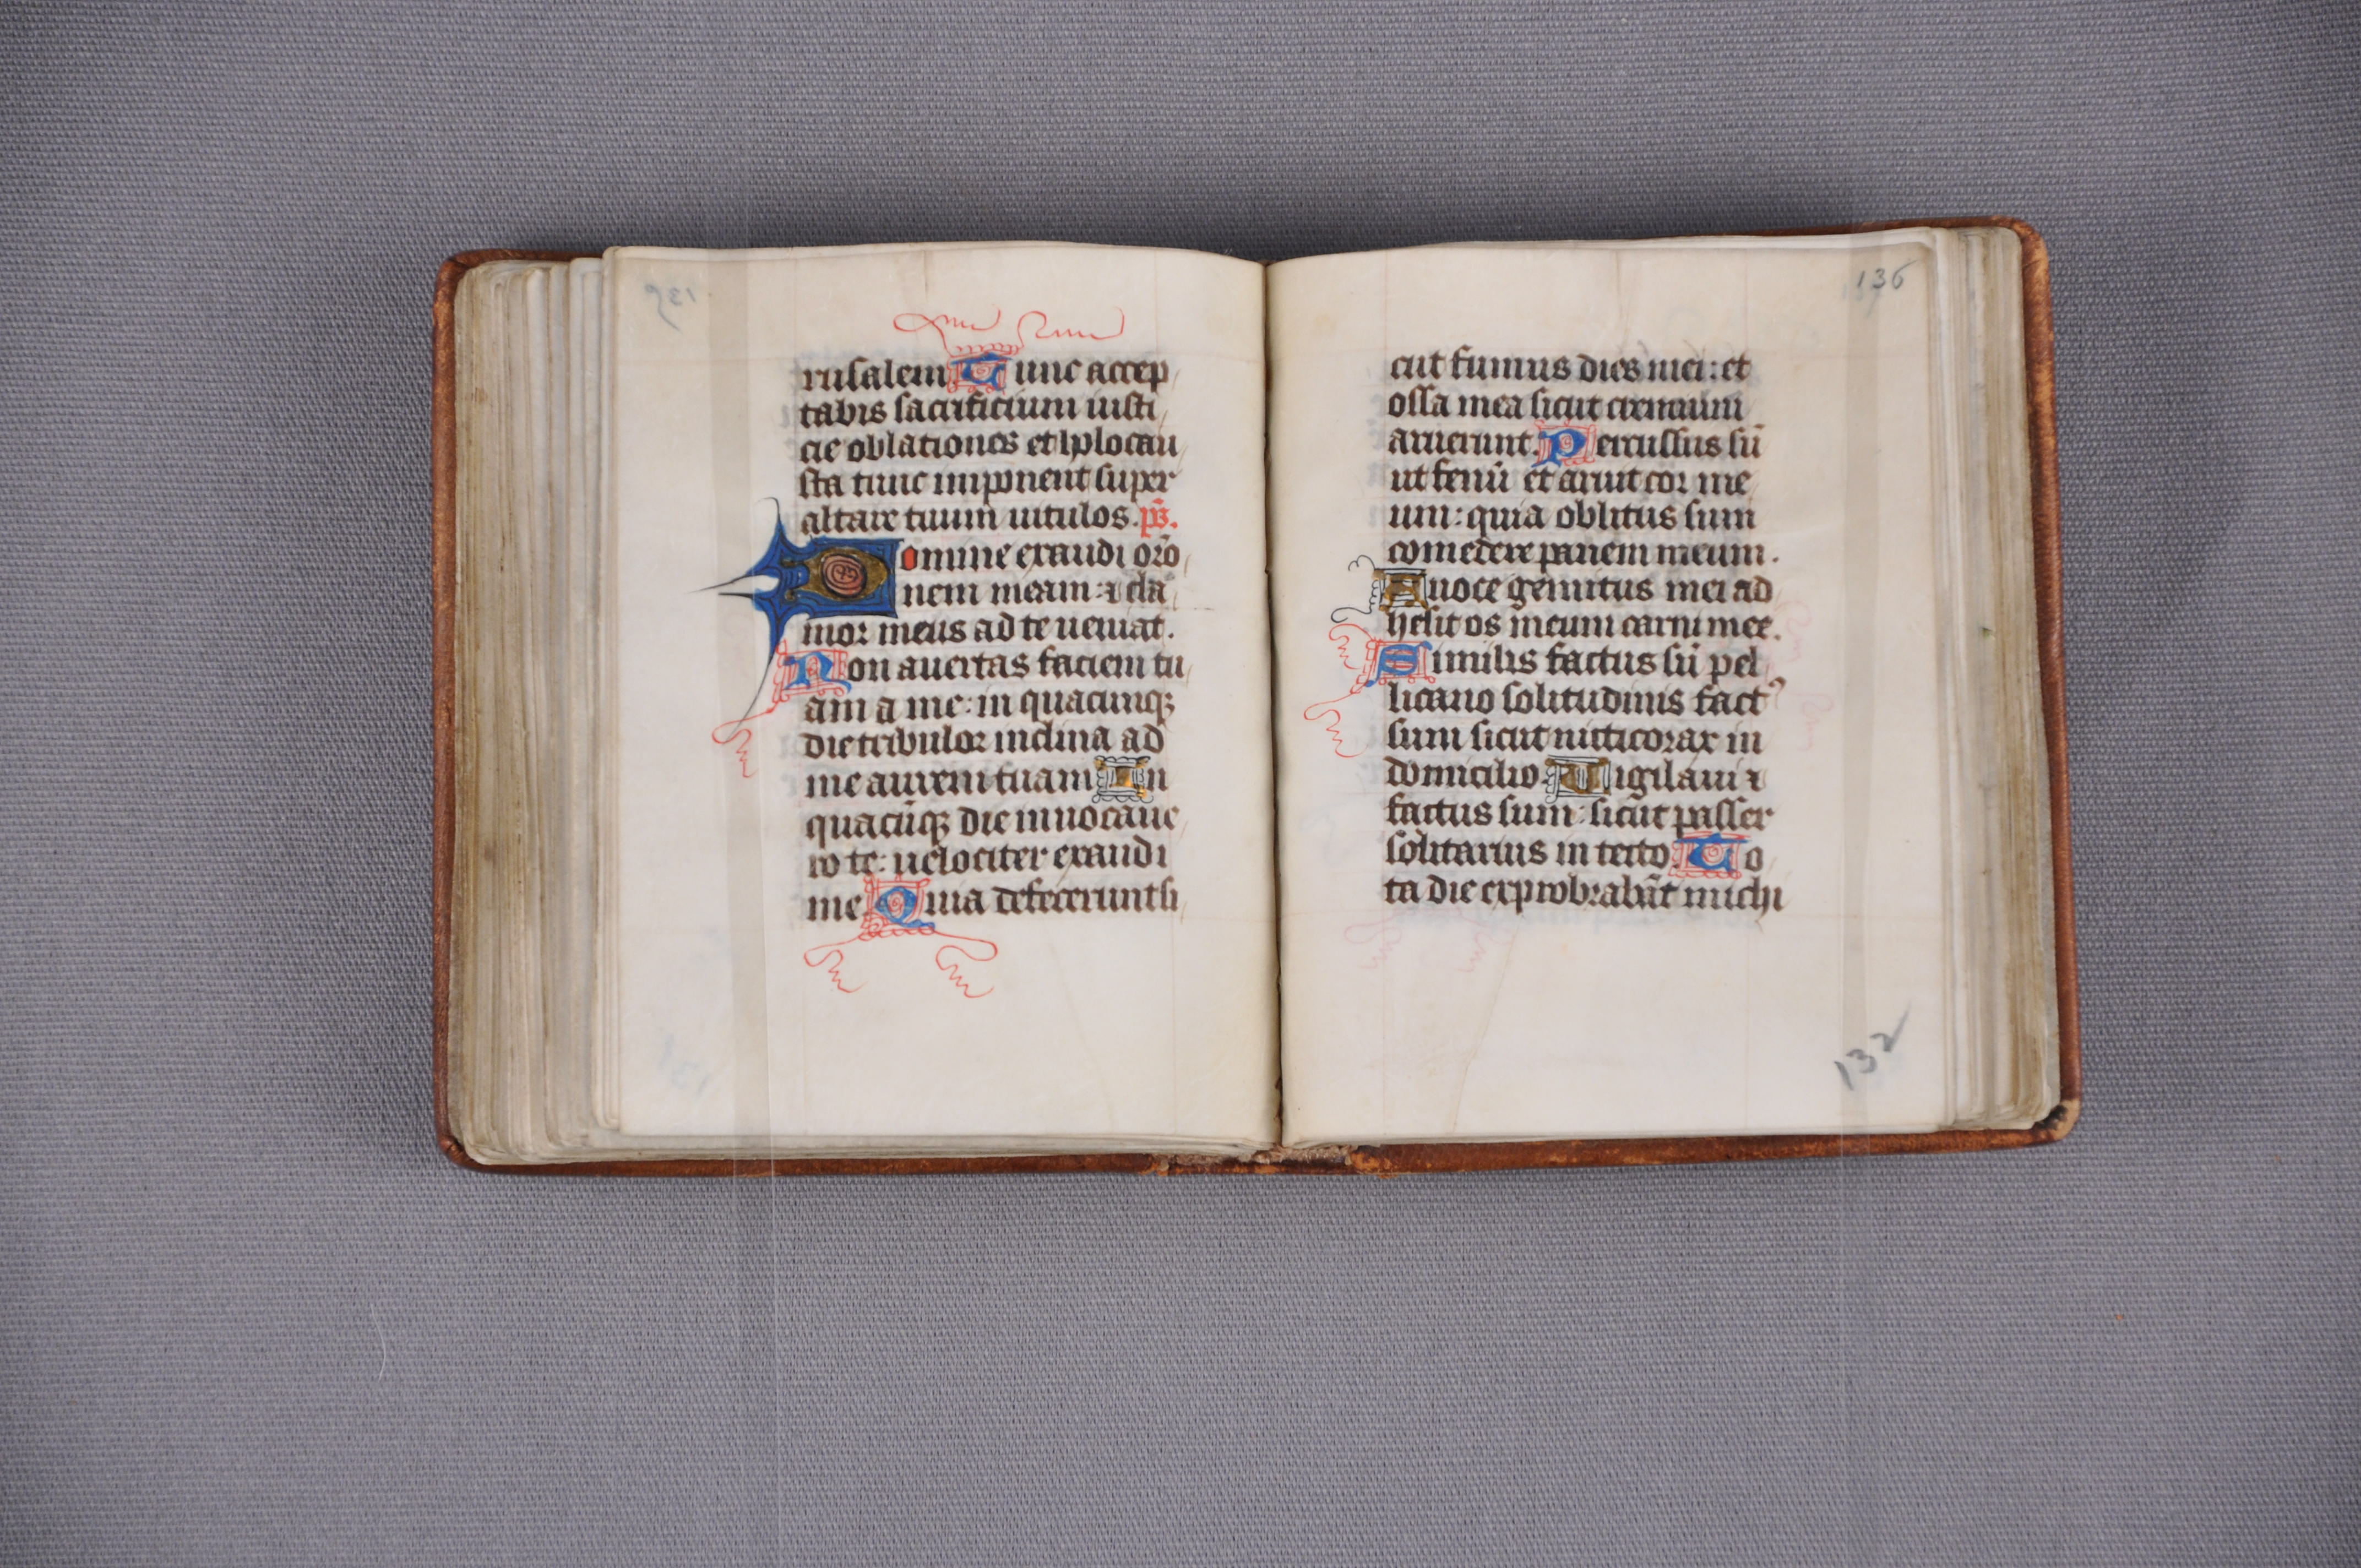 rusalem Tunc accep
tabis sacrificium iusti
cie oblationes et holocau
sta tunc imponent super
altare tuum uitulos. ps̄.
Domine exaudi or̄o
nem meam: ⁊ cla
mor meus ad te ueniat.
Non auertas faciem tu
am a me: in quacunqꝫ
die tribulor inclina ad
me aurem tuam In
quacūqꝫ die inuocaue
ro te: uelociter exaudi
me Quia defecerunt si
136
cut fumus dies mei: et
ossa mea sicut cremium
aruerunt. Percussus sū
ut fenū et aruit cor me
um: quia oblitus sum
comedere panem meum.
A uoce gemitus mei ad
hesit os meum carni mee.
Similis factus sū pel
licano solitudinis factꝰ
sum sicut nicticorax in
domicilio. Uigilaui ⁊
factus sum: sicut passer
solitarius in tecto. To
ta die exprobrabāt michi
132